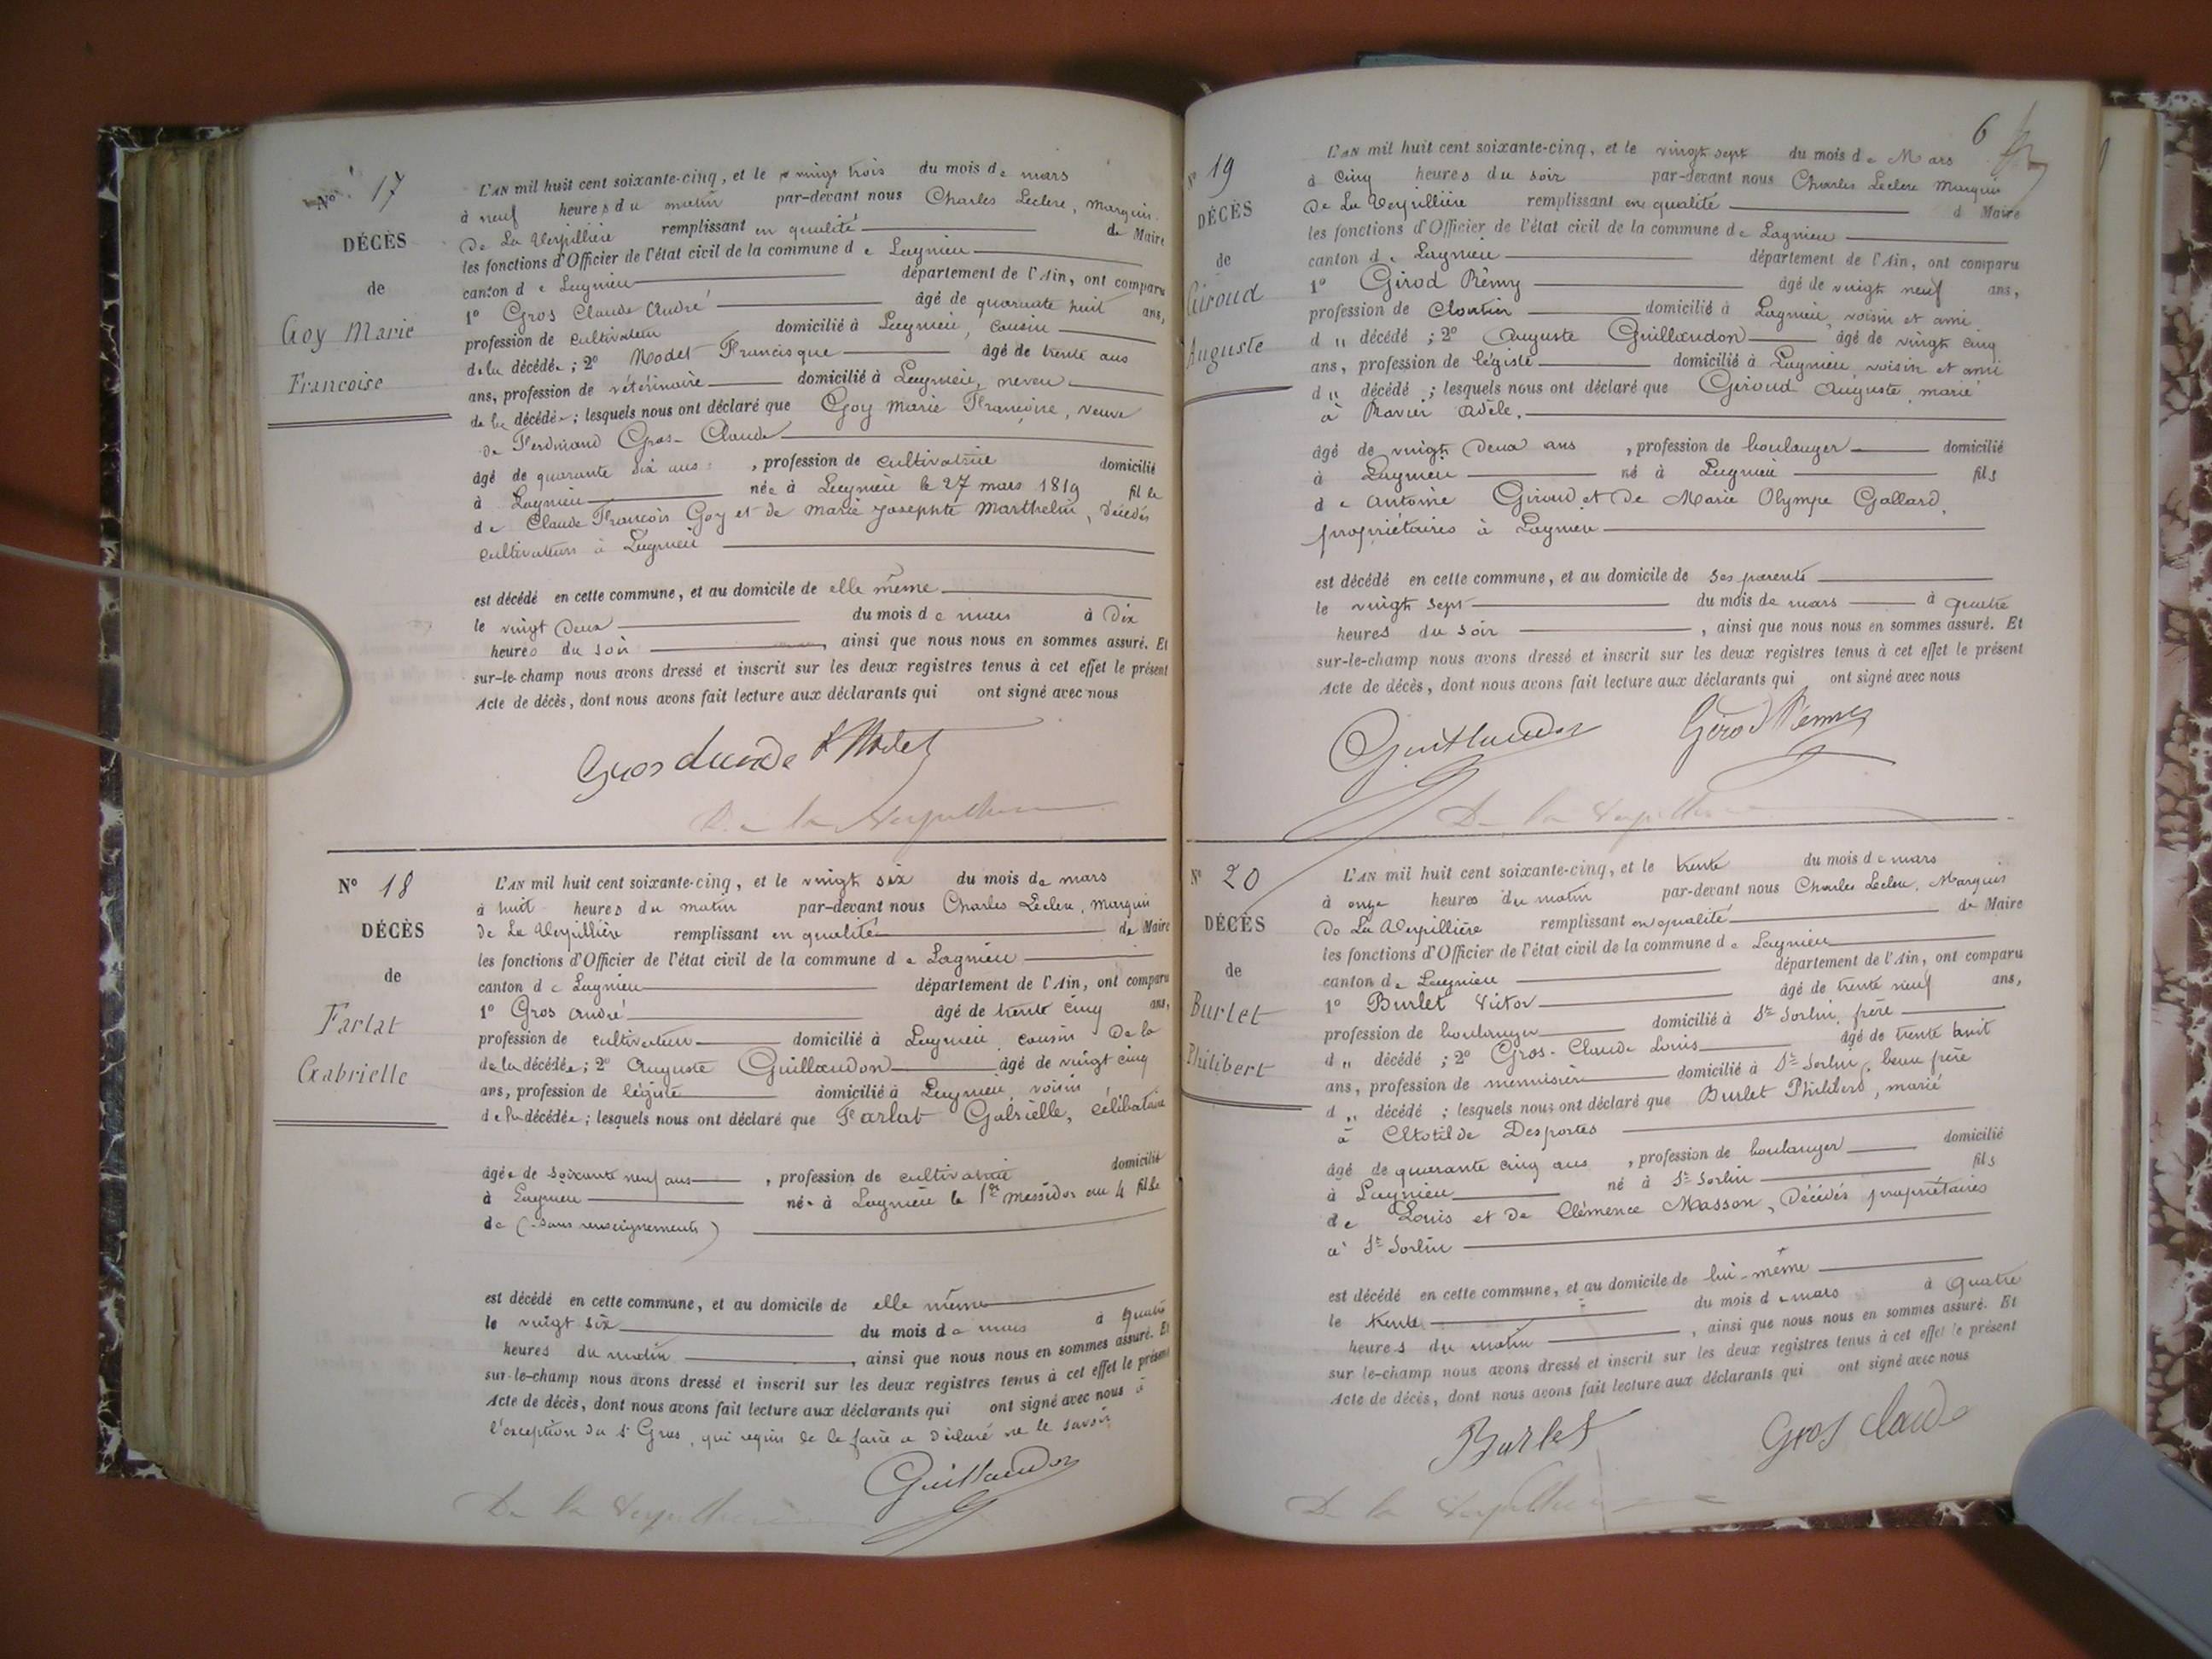 N° 17
DÉCÈS
de
Goy Marie
Francoise
L'AN mil huit cent soixante-cinq, et le vingt trois du mois de mars
à neuf heures du matin par-devant nous Charles Leclerc, marquis
De La Verpillière remplissant en qualité de Maire
les fonctions d'Officier de l'état civil de la commune de Lagnieu
canton de Lagnieu département de l'Ain, ont comparu
1° Gros Claude André âgé de quarante huit ans,
profession de cultivateur domicilié à Lagnieu, cousin
de la décédée; 2° Modet Francisque âgé de trente ans
ans, profession de vétérinaire domicilié à Lagnieu, neveu
de la décédée; lesquels nous ont déclaré que Goy Marie Françoise, veuve
de Ferdinand Gros-Claude
âgé de quarante six ans, profession de cultivatrice domicilié
à Lagnieu née à Lagnieu le 27 mars 1819 fille
de Claude François Goy et de Marie Josephte Marthelin, décédés
cultivateurs à Lagnieu
est décédé en cette commune, et au domicile de elle même
le vingt deux du mois de mars à Dix
heures du soir, ainsi que nous nous en sommes assuré. Et
sur-le-champ nous avons dressé et inscrit sur les deux registres tenus à cet effet le présent
Acte de décès, dont nous avons fait lecture aux déclarants qui ont signé avec nous
Gros claude F Modet
De la Verpillière
N° 18
DÉCÈS
de
Farlat
Gabrielle
L'AN mil huit cent soixante-cinq, et le vingt six du mois de mars
à huit heures du matin par-devant nous Charles Leclerc, marquis
De La Verpillière remplissant en qualité de Maire
les fonctions d'Officier de l'état civil de la commune de Lagnieu
canton de Lagnieu département de l'Ain, ont comparu
1° Gros André âgé de trente cinq ans,
profession de cultivateur domicilié à Lagnieu, cousin De la
de la décédée; 2° Auguste Guillaudon âgé de vingt cinq
ans, profession de légiste domicilié à Lagnieu, voisin
de la décédée; lesquels nous ont déclaré que Farlat Gabrielle, célibataire
âgée de soixante neuf ans, profession de cultivatrice domicilié
à Lagnieu née à Lagnieu le 1er messidor an 4 fille
de (sans renseignements)
est décédé en cette commune, et au domicile de elle même
le vingt six du mois de mars à quatre
heures du matin, ainsi que nous nous en sommes assuré. Et
sur-le-champ nous avons dressé et inscrit sur les deux registres tenus à cet effet le présent
Acte de décès, dont nous avons fait lecture aux déclarants qui ont signé avec nous à
l'exception du Sr Gros, qui requis de le faire a déclaré ne le savoir
Guillaudon
De la Verpillière
6
N° 19
DÉCÈS
de
Giroud
Auguste
L'AN mil huit cent soixante-cinq, et le vingt sept du mois de Mars
à cinq heures du soir par-devant nous Charles Leclerc Marquis
De La Verpillière remplissant en qualité d Maire
les fonctions d'Officier de l'état civil de la commune de Lagnieu
canton de Lagnieu département de l'Ain, ont comparu
1° Girod Rémy âgé de vingt neuf ans,
profession de Cloutier domicilié à Lagnieu, voisin et ami
du décédé; 2° Auguste Guillaudon âgé de vingt cinq
ans, profession de légiste domicilié à Lagnieu, voisin et ami
du décédé; lesquels nous ont déclaré que Giroud Auguste, marié
à Ravier Adèle,
âgé de vingt deux ans, profession de boulanger domicilié
à Lagnieu né à Lagnieu fils
de Antoine Giroud et de Marie Olympe Gallard,
propriétaires à Lagnieu
est décédé en cette commune, et au domicile de ses parents
le vingt sept du mois de mars à quatre
heures du soir, ainsi que nous nous en sommes assuré. Et
sur-le-champ nous avons dressé et inscrit sur les deux registres tenus à cet effet le présent
Acte de décès, dont nous avons fait lecture aux déclarants qui ont signé avec nous
Guillaudon Girod Rémy
De la Verpillière
N° 20
DÉCÈS
de
Burlet
Philibert
L'AN mil huit cent soixante-cinq, et le trente du mois de mars
à onze heures du matin par-devant nous Charles Leclerc, Marquis
De La Verpillière remplissant en qualité de Maire
les fonctions d'Officier de l'état civil de la commune de Lagnieu
canton de Lagnieu département de l'Ain, ont comparu
1° Burlet Victor âgé de trente neuf ans,
profession de boulanger domicilié à St Sorlin, frère
du décédé; 2° Gros-Claude Louis âgé de trente huit
ans, profession de menuisier domicilié à St Sorlin, beau frère
du décédé; lesquels nous ont déclaré que Burlet Philibert, marié
à Clotilde Desportes
âgé de quarante cinq ans, profession de boulanger domicilié
à Lagnieu né à St Sorlin fils
de Louis et de Clémence Masson, décédés propriétaires
à St Sorlin
est décédé en cette commune, et au domicile de lui-même
le trente du mois de mars à quatre
heures du matin, ainsi que nous nous en sommes assuré. Et
sur le-champ nous avons dressé et inscrit sur les deux registres tenus à cet effet le présent
Acte de décès, dont nous avons fait lecture aux déclarants qui ont signé avec nous
Burlet Gros claude
De la Verpillière